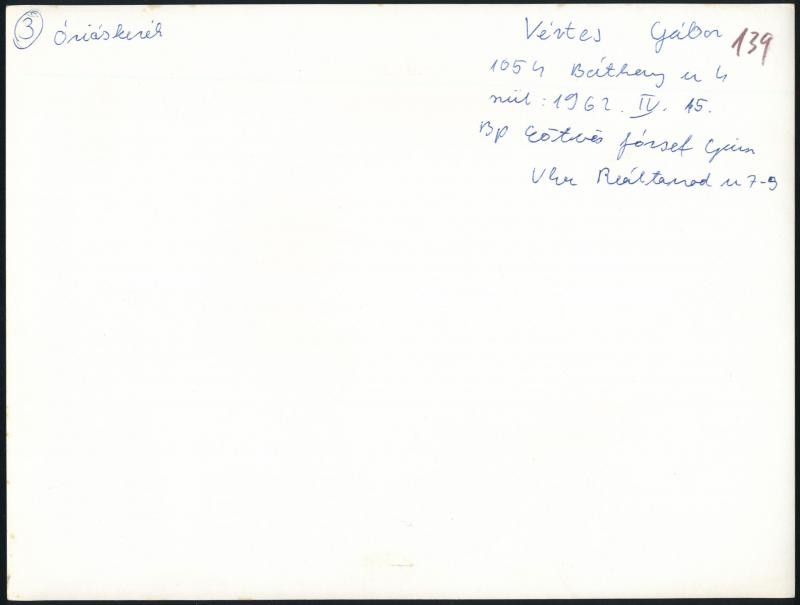 3 Óriáskerék
Vértes Gábor 139
1054 Báthory u 4
szül: 1962. IV. 15.
Bp Eötvös József Gimn
V ker Reáltanoda u 7-9